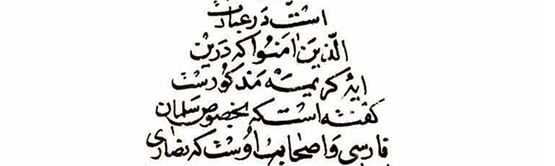 است در عبارت
الذین امنوا که درین
ایهٔ کریمیه مذکورست
کفته است که بخصوص سلمان
فارسی و اصحاب اوست که نصاری